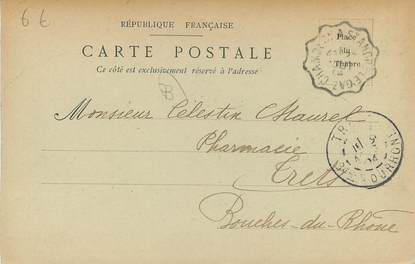 6 €
RÉPUBLIQUE FRANÇAISE
CARTE POSTALE
Ce côté est exclusivement réservé à l'adresse
Place
du
Timbre
Monsieur Célestin Maurel
Pharmacie
Trets
Bouches-du-Rhône